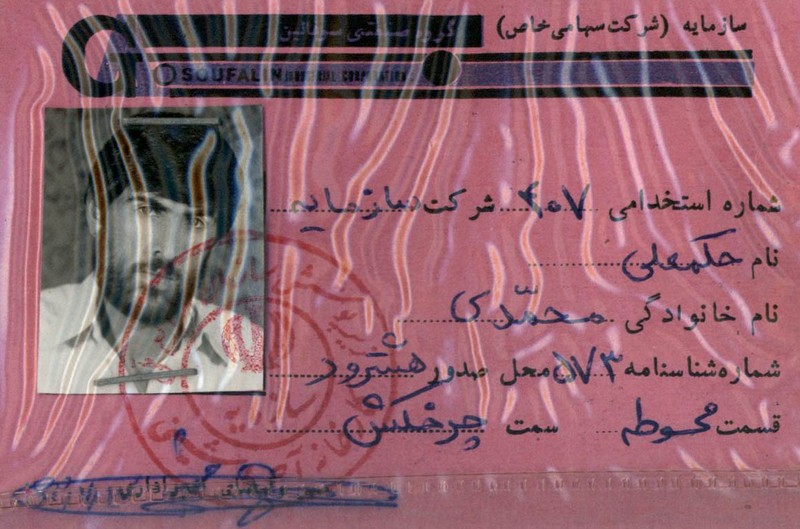 سازمایه (شرکت سهامی خاص) گروه صنعتی سوفالین
SOUFALIN INDUSTRIAL CORPORATION
شماره استخدامی ۴۰۷ شرکت سازمایه
نام حکمعلی
نام خانوادگی محمّدی
شماره شناسنامه ۵۷۳ محل صدور هشترود
قسمت محوطه سمت چرخکش